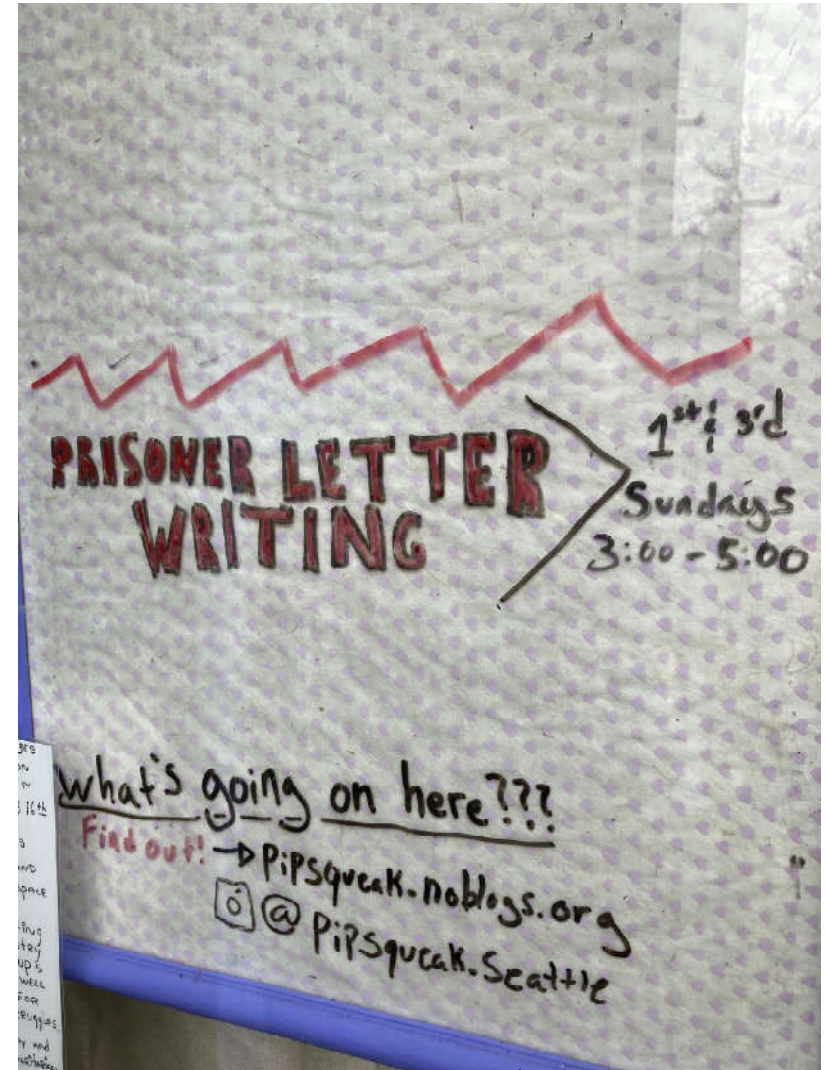 PRISONER LETTER
WRITING
1st & 3rd
Sundays
3:00 - 5:00
what's going on here???
Find out! → PiPsqueak.noblogs.org
@ PiPsqueak.Seattle
16th
AND
SPACE
WELL
FOR
and